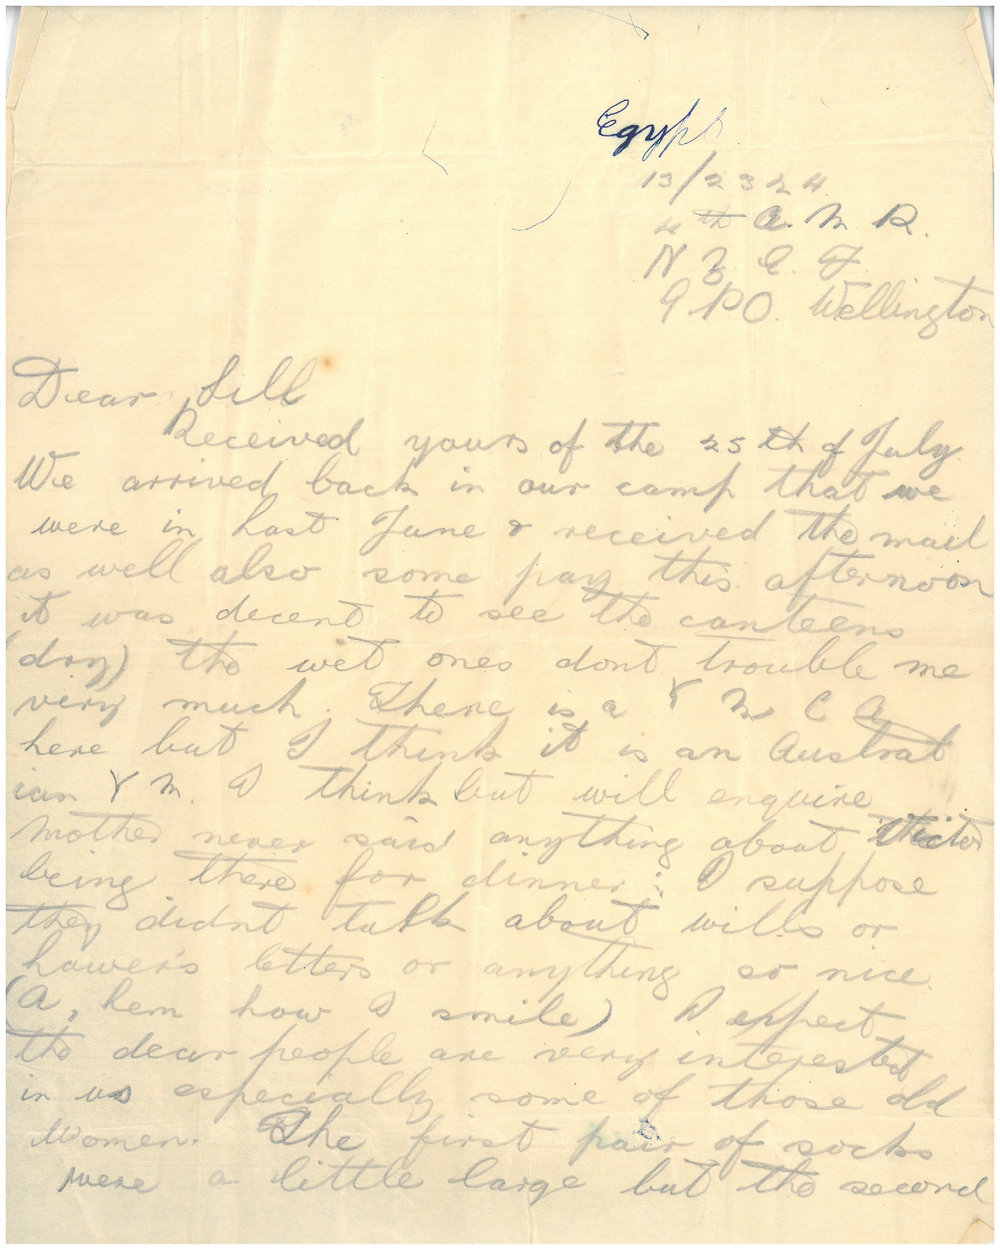 Egypt
13/2324
4th A. M. R.
N Z. E. F.
G. P.O. Wellington
Dear Lill
Received yours of the 25th of July.
We arrived back in our camp that we
were in last June & received the mail
as well also some pay this afternoon
it was decent to see the canteens
(dry) the wet ones dont trouble me
very much. There is a Y M C A
here but I think it is an Austral
ian Y M. I think but will enquire
Mother never said anything about
being there for dinner. I suppose
they didnt talk about wills or
lawer's letters or anything so nice
(A, hem how I smile) I expect
the dear people are very interested
in us especially some of those old
women. The first pair of socks
were a little large but the second